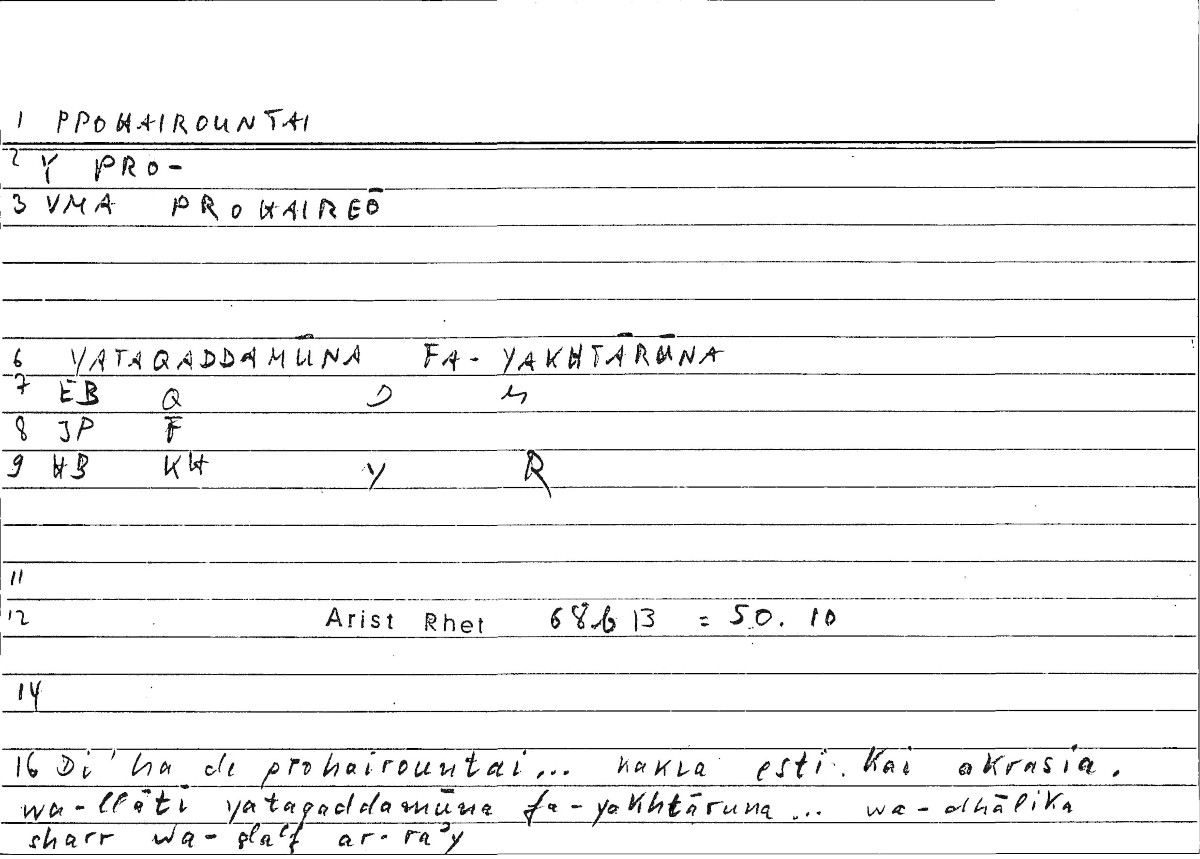 1 PPOHAIROUNTAI
2 Y PRO-
3 VMA PROHAIREŌ
6 YATAQADDAMŪNA FA- YAKHTĀRŪNA
7 EB Q D M
8 JP F
9 HB KH Y R
11
12 Arist Rhet 68b13 = 50.10
14
16 Di' ha de prohairountai... kakia esti. Kai akrasia.
wa-llātī yataqaddamūna fa-yakhtāruna... wa-dhālika
sharr wa- ar-ra'y